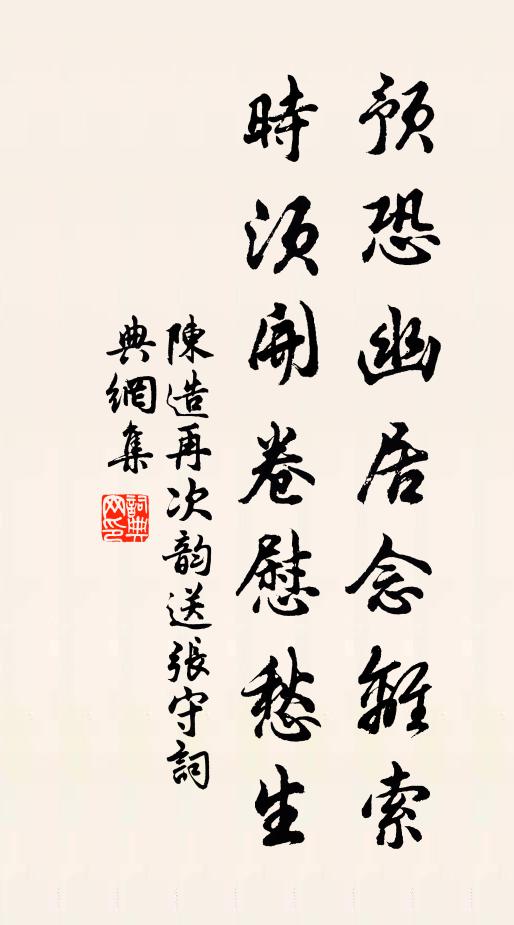 預恐幽居念離索
時須開卷慰愁生
陳造再次韵送張守詞
典網集
詞典網印